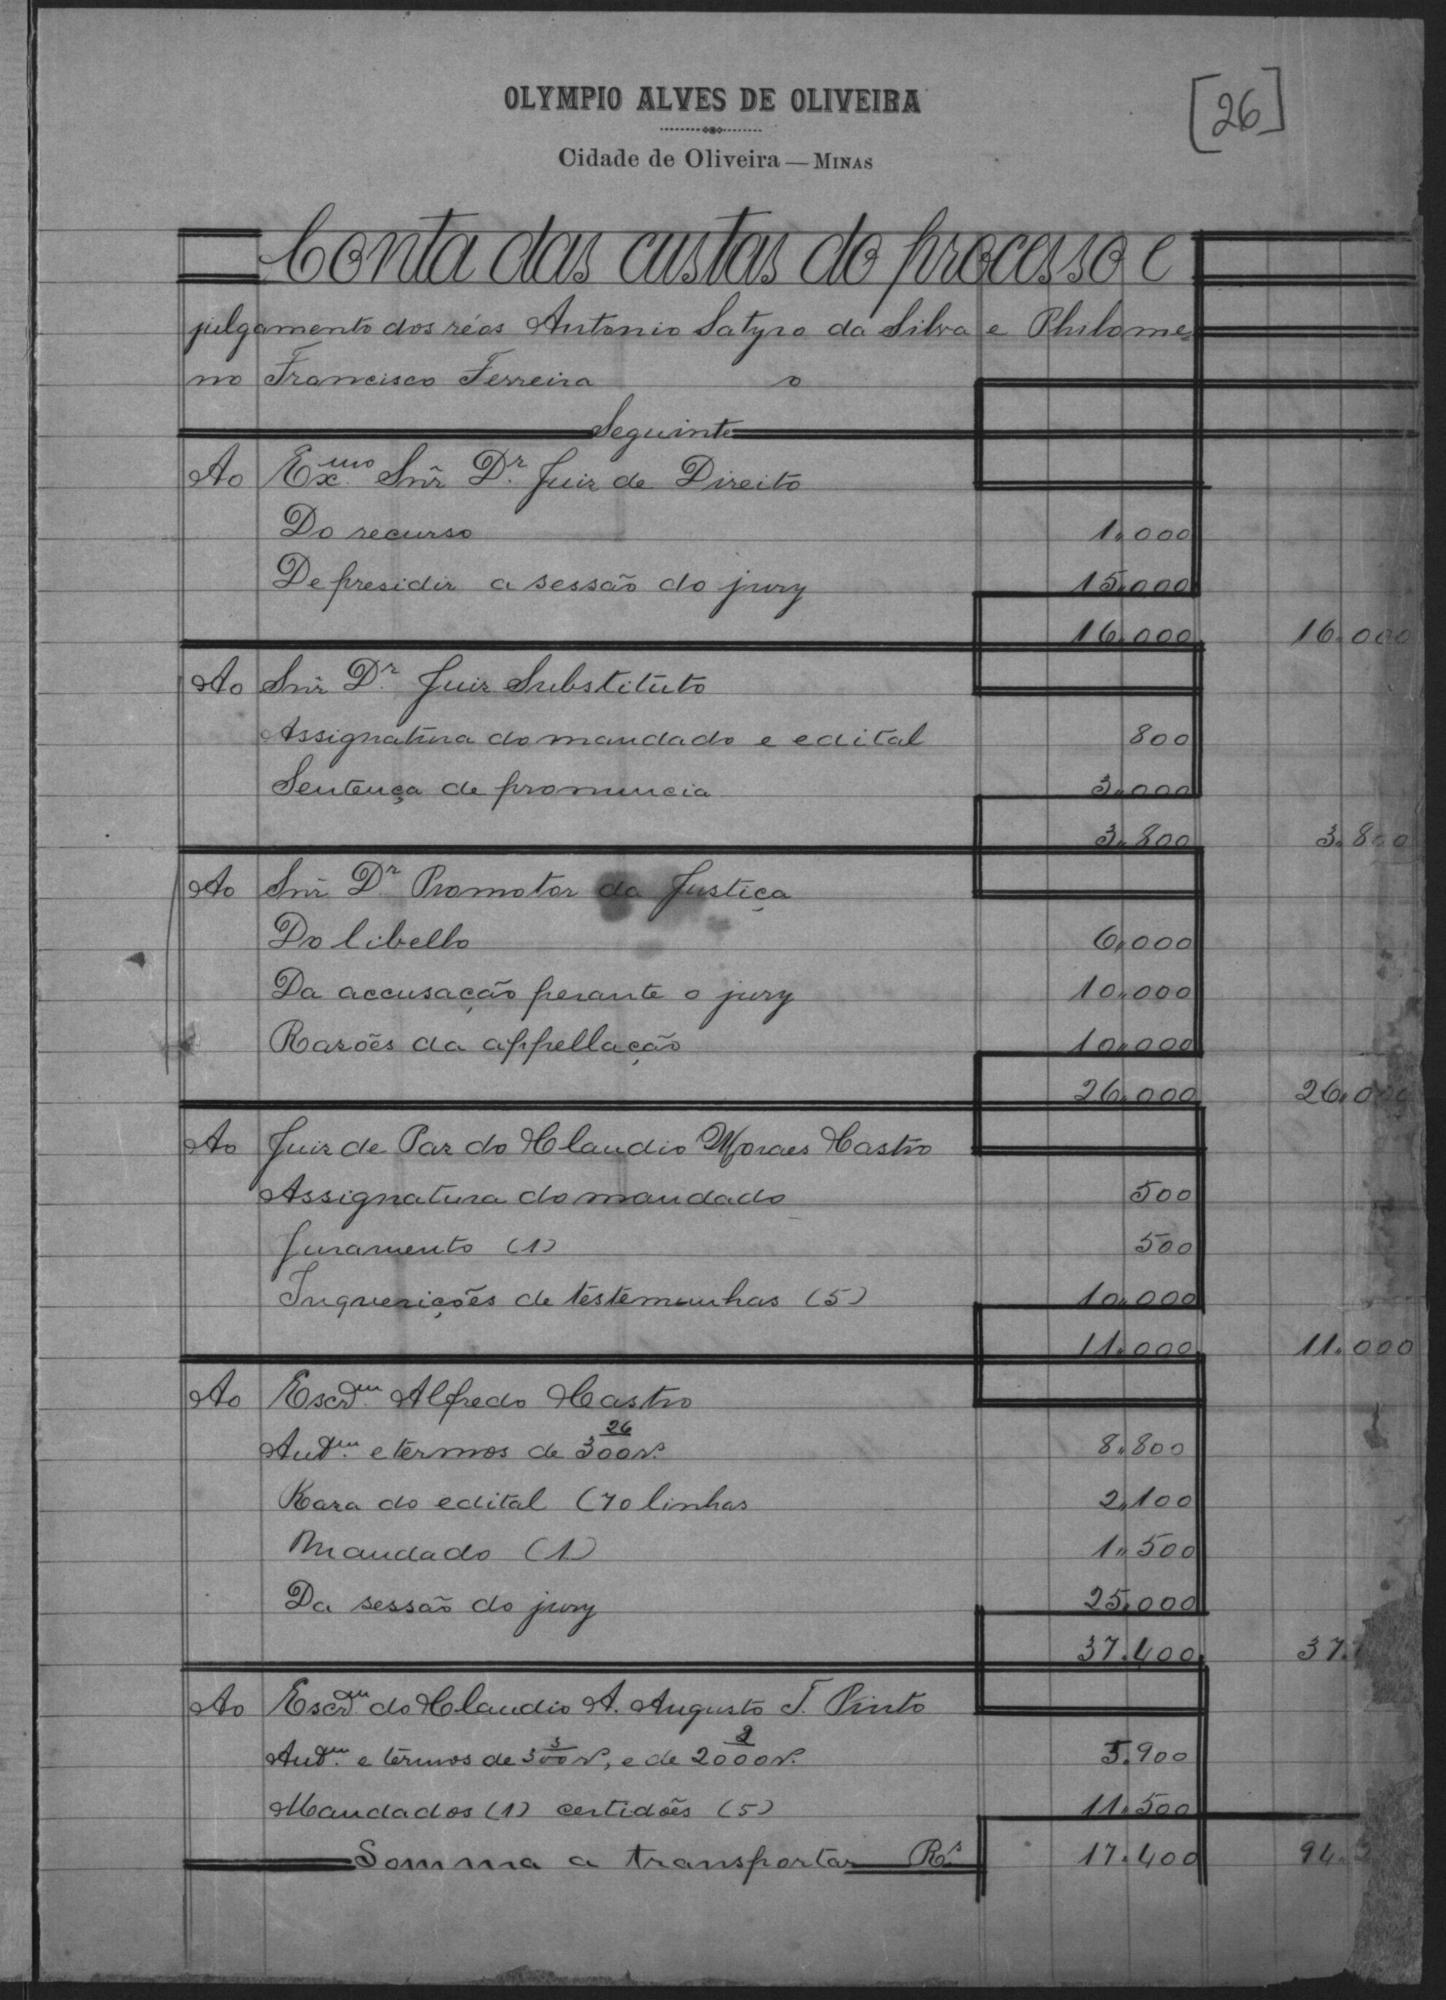 OLYMPIO ALVES DE OLIVEIRA
Cidade de Oliveira — MINAS
[26]
Conta das custas do processo e
julgamento dos réos Antonio Satyro da Silva e Philome
no Francisco Ferreira o
Seguinte
Ao Ex.mo Snr D.r Juiz de Direito
Do recurso 1.000
De presidir a sessão do jury 15.000
16.000 16.000
Ao Snr D.r Juiz Substituto
Assignatura do mandado e edital 800
Sentença de pronuncia 3.000
3.800 3.800
Ao Snr D.r Promotor da Justiça
Do libello 6.000
Da accusação perante o jury 10.000
Razões da appellação 10.000
26.000 26.000
Ao Juiz de Paz do Claudio Moraes Castro
Assignatura do mandado 500
Juramento (1) 500
Inquerições de testemunhas (5) 10.000
11.000 11.000
Ao Escr.m Alfredo Castro
26
e termos de 300 rs. 8.800
do edital (70 linhas 2.100
Mandado (1) 1.500
Da sessão do jury 25.000
37.400 37.
Ao Escr.m do Claudio A. Augusto T. Pinto
3 2
e termos de 300 rs, e de 2000 rs. 5.900
Mandados (1) certidões (5) 11.500
Somma a transportar Rs. 17.400 94.